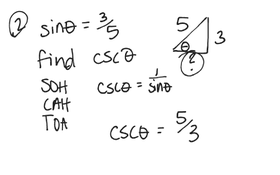 2. sinθ = 3/5
find cscθ
SOH
CAH
TOA
cscθ = 1/sinθ
cscθ = 5/3
5
3
θ
?